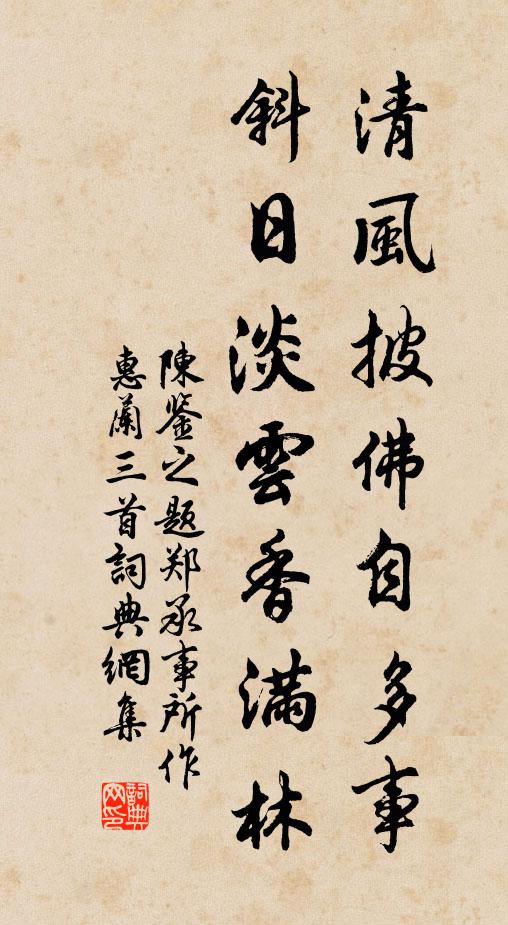 清風披佛自多事
斜日淡雲香滿林
陳鉴之题郑承事所作
惠蘭三首詞典網集
詞典网印